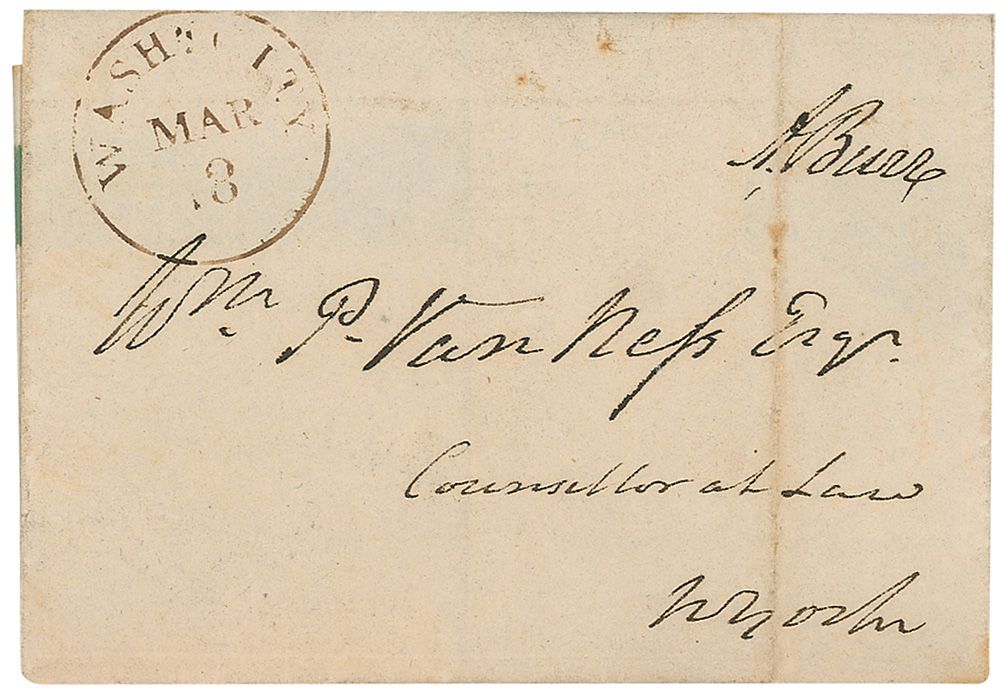 WASH. CITY
MAR
18
A. Burr
Wm. P. Van Ness Esqr.
Counsellor at Law
NYork